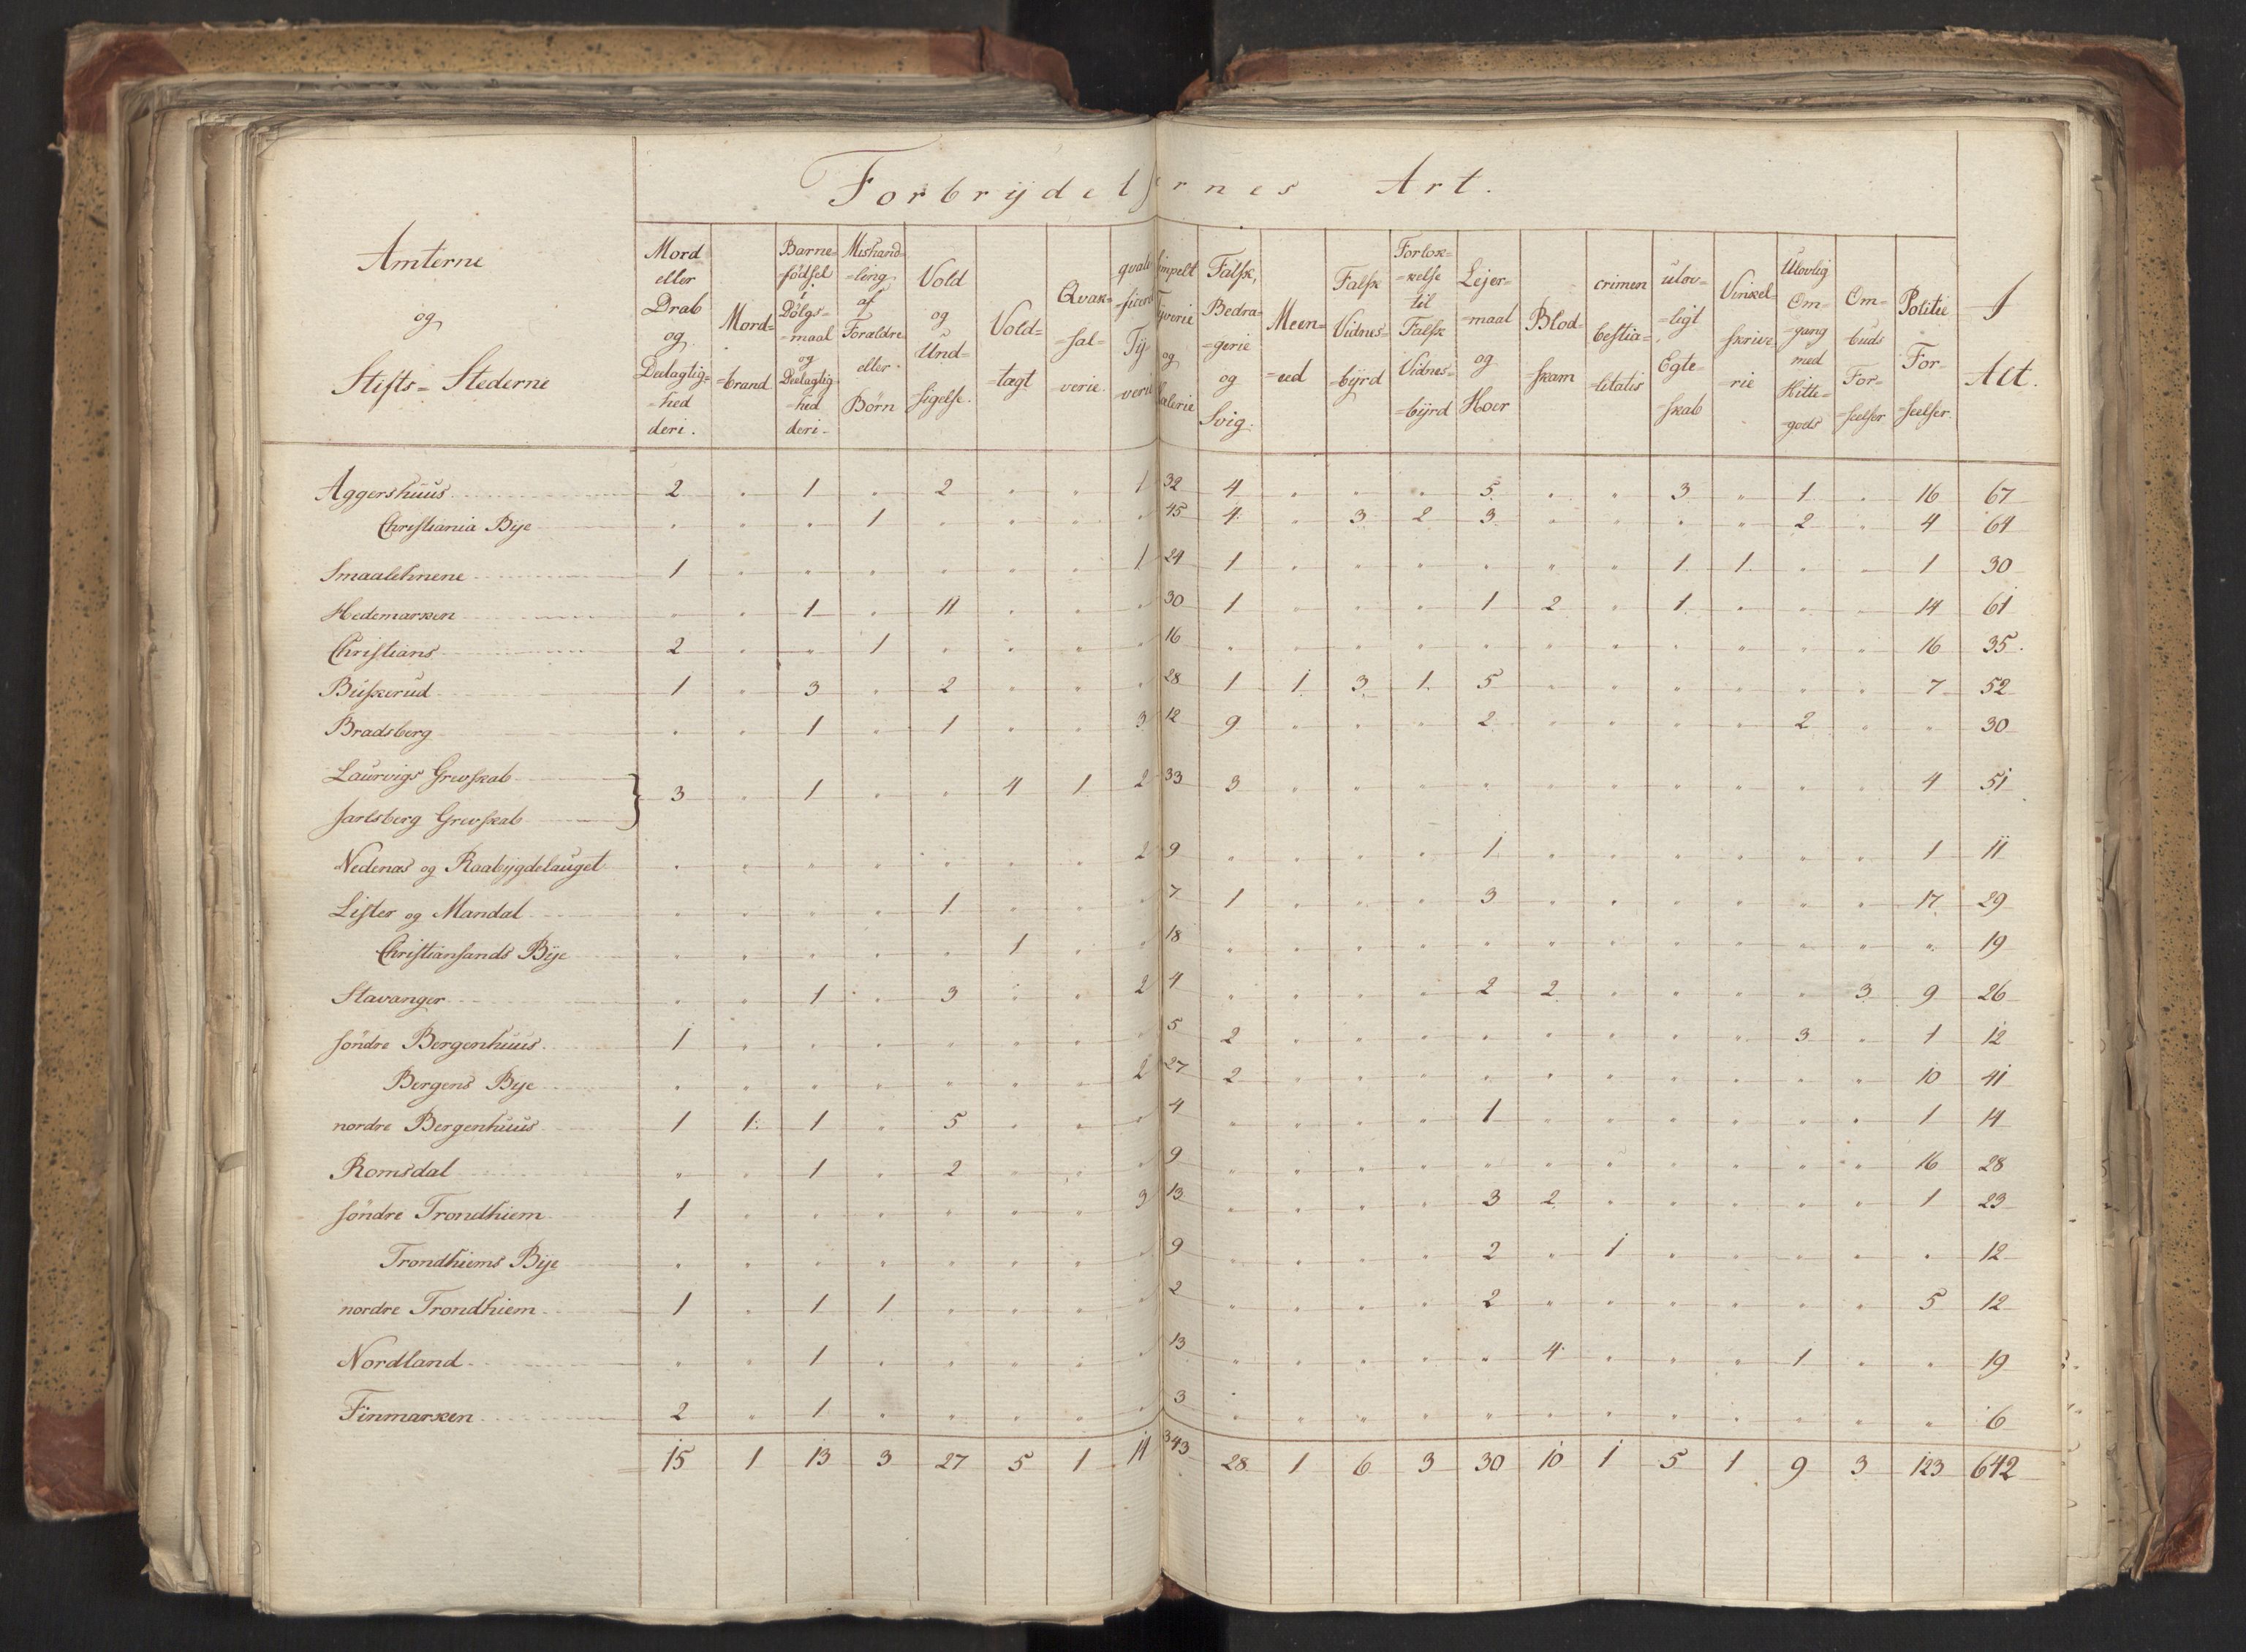 Forbrydelsernes Art.
Amterne og Stifts=Stederne | Mord eller Drab og Deelagtig=hed deri. | Mord=brand | Barne=fødsel i Dølgs=maal og Deelagtig=hed deri. | Mishand=ling af Forældre eller Børn | Vold og Und=sigelse. | Vold=tægt | Qvak=sal=verie. | qvali=ficeret Ty=verie | simpelt Tyverie og Hælerie | Falsk, Bedra=gerie og Svig. | Meen=eed | Falsk Vidnes=byrd | Forlok=kelse til Falsk Vidnes=byrd | Lejer=maal og Hoer | Blod=skam | crimen bestia=litatis | ulov=ligt Egte=skab | Vinkel=skrive=rie | Ulovlig Om=gang med Hitte=gods | Om=buds For=seelser | Politie For=seelser. | I Alt.
Aggershuus 2 " 1 " 2 " " 1 32 4 " " " 5 " " 3 " 1 " 16 67
Christiania Bye " " " 1 " " " " 45 4 " 3 2 3 " " " " 2 " 4 64
Smaalehnene 1 " " " " " " 1 24 1 " " " " " " 1 1 " " 1 30
Hedemarken " " 1 " 11 " " " 30 1 " " " 1 2 " 1 " " " 14 61
Christians 2 " " 1 " " " " 16 " " " " " " " " " " " 16 35.
Buskerud 1 " 3 " 2 " " " 28 1 1 3 1 5 " " " " " " 7 52
Bradsberg " " 1 " 1 " " 3 12 9 " " " 2 " " " " 2 " " 30
Laurvigs Grevskab
Jarlsberg Grevskab } 3 " 1 " " 4 1 2 33 3 " " " " " " " " " " 4 51
Nedenæs og Raabygdelauget " " " " " " " 2 9 " " " " 1 " " " " " " 1 11
Lister og Mandal " " " " 1 " " " 7 1 " " " 3 " " " " " " 17 29
Christiansands Bye " " " " " 1 " " 18 " " " " " " " " " " " " 19
Stavanger " " 1 " 3 " " 2 4 " " " " 2 2 " " " " 3 9 26
søndre Bergenhuus 1 " " " " " " " 5 2 " " " " " " " " 3 " 1 12
Bergens Bye " " " " " " " 2 27 2 " " " " " " " " " " 10 41
nordre Bergenhuus 1 1 1 " 5 " " " 4 " " " " 1 " " " " " " 1 14
Romsdal " " 1 " 2 " " " 9 " " " " " " " " " " " 16 28
søndre Trondhiem 1 " " " " " " 3 13 " " " " 3 2 " " " " " 1 23
Trondhiems Bye " " " " " " " " 9 " " " " 2 " 1 " " " " " 12
nordre Trondhiem 1 " 1 1 " " " " 2 " " " " 2 " " " " " " 5 12
Nordland " " 1 " " " " " 13 " " " " " 4 " " " 1 " " 19
Finmarken 2 " 1 " " " " " 3 " " " " " " " " " " " " 6
15 1 13 3 27 5 1 14 343 28 1 6 3 30 10 1 5 1 9 3 123 642